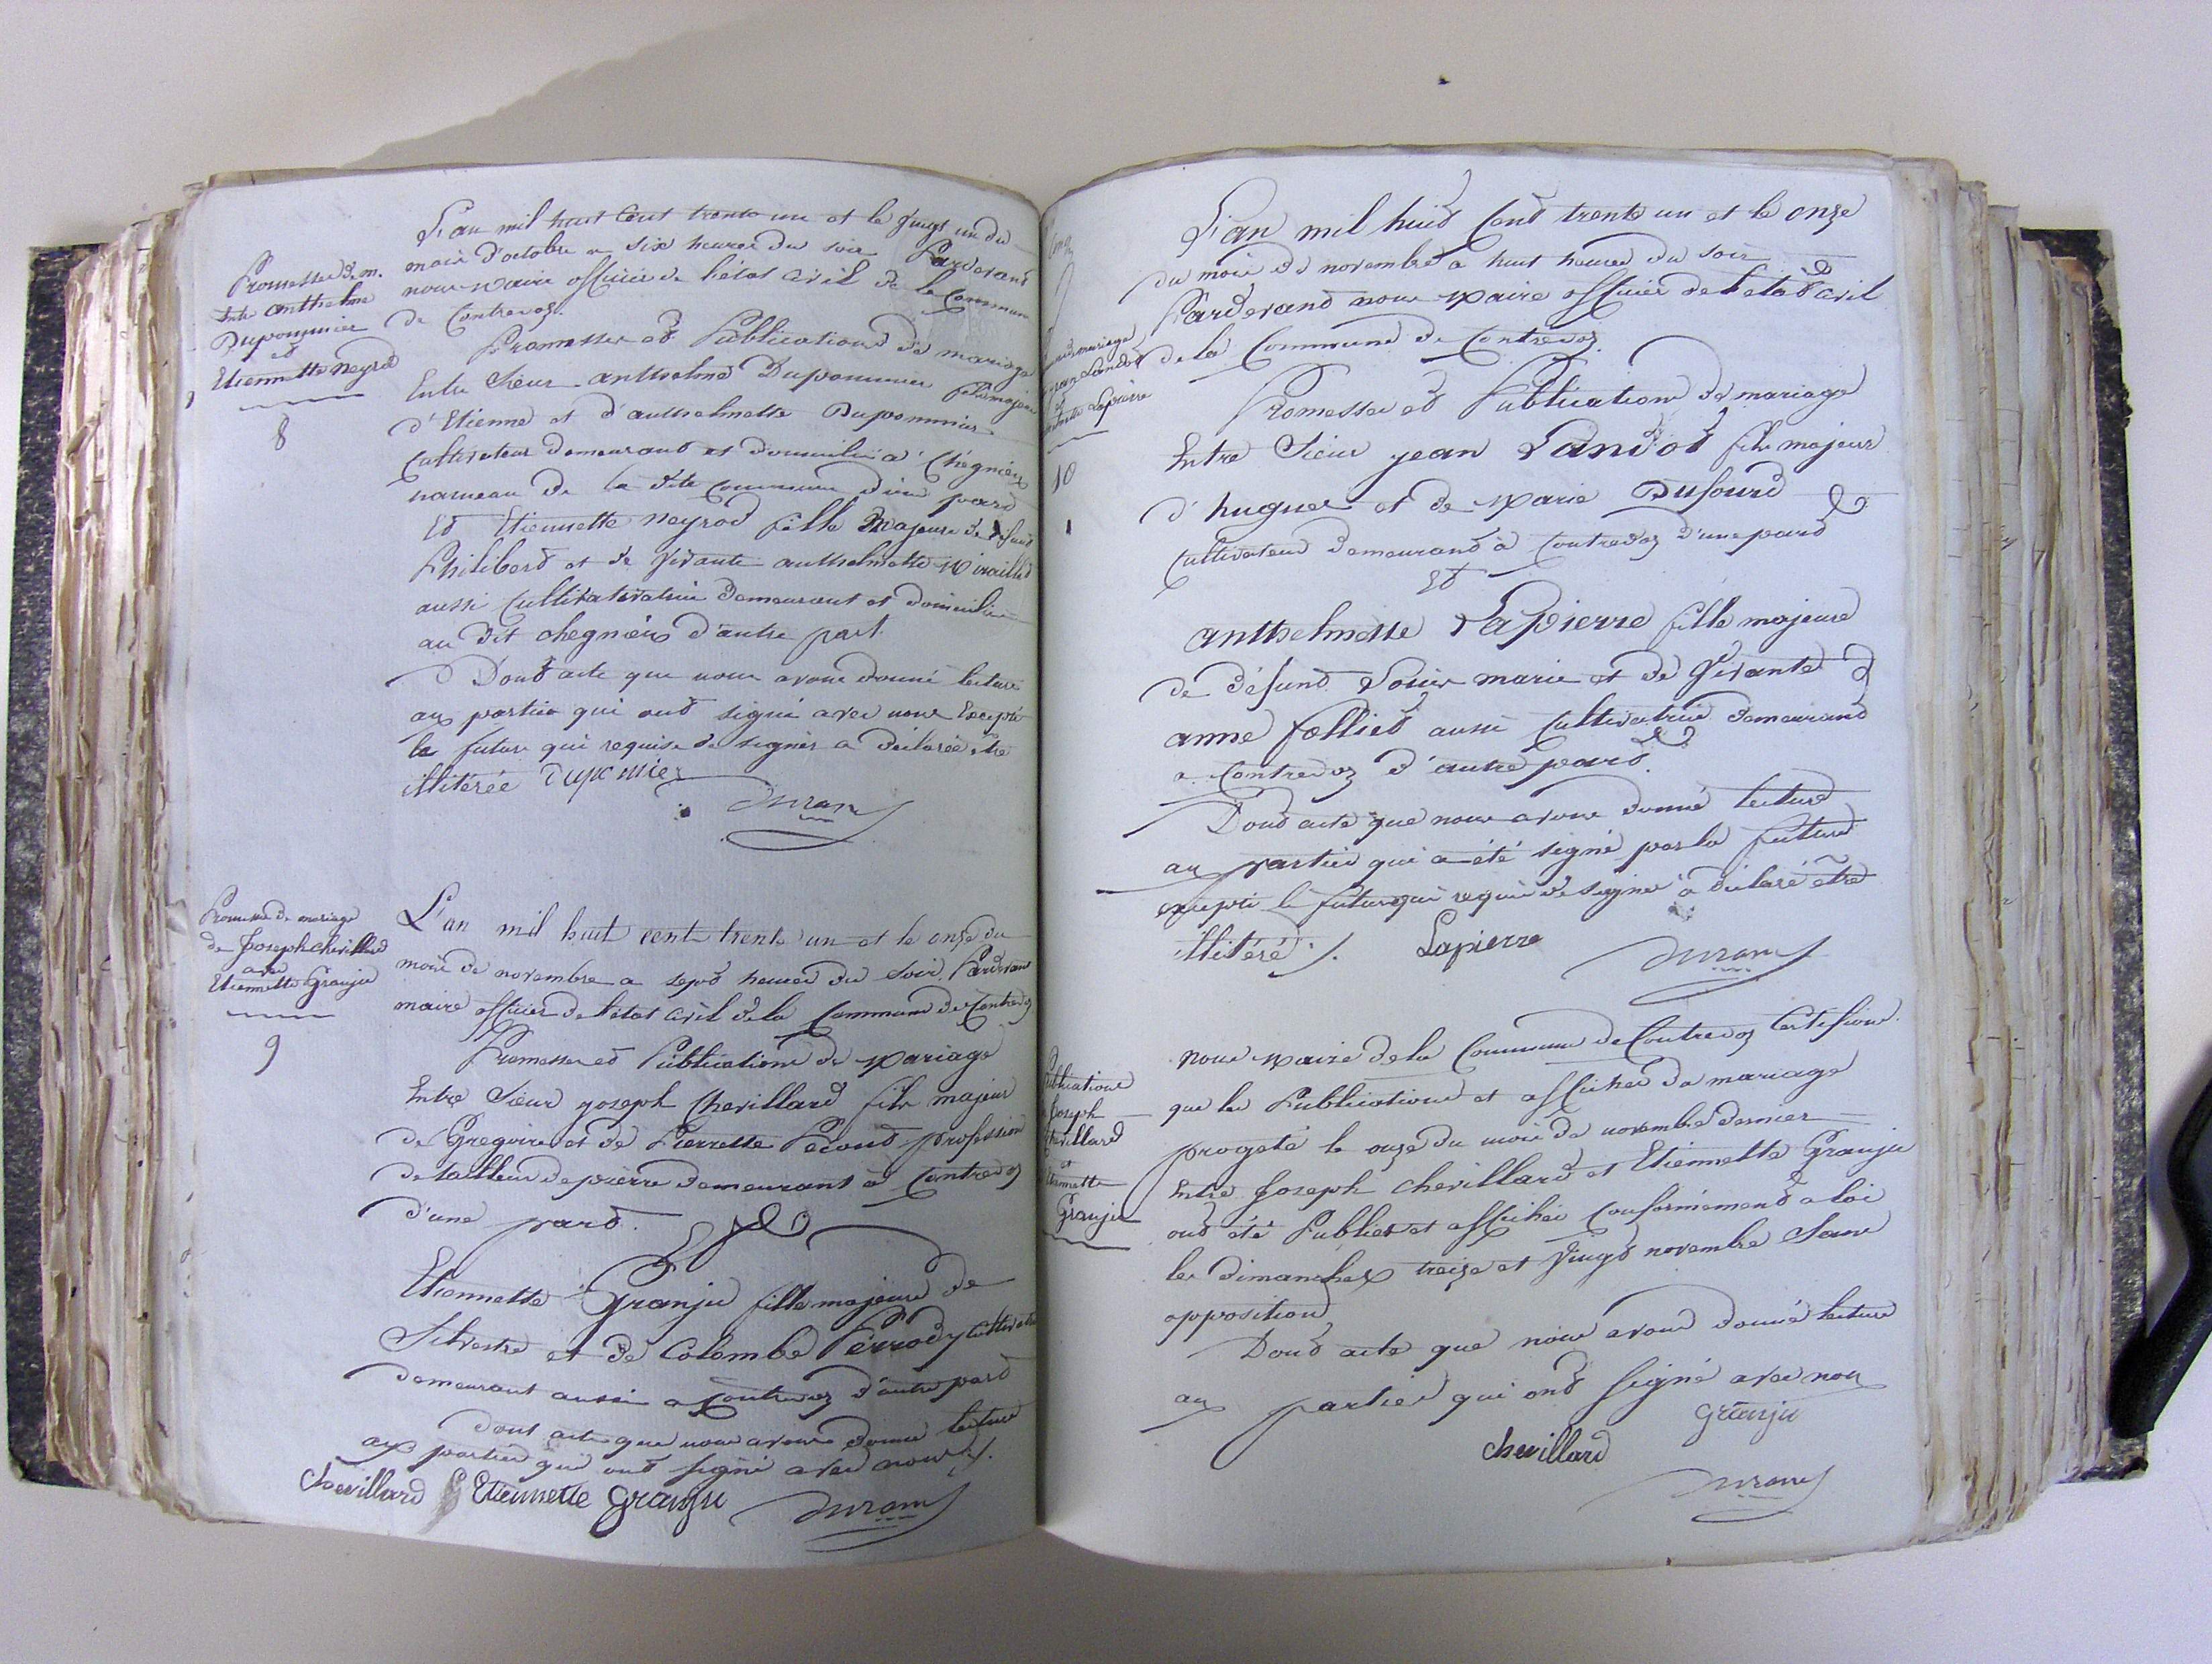 L'an mil huit Cent trente un et le Vingt un du
mois d'octobre a six heures du soir Pardevant
nous maire officier de l'état Civil de la Commune
de Contrevoz.
Promesse de m.
Entre anthelme
Dupommier
et
Etiennette Neyrod
8
Promesses et Publications de mariage
Entre Sieur anthelme Dupommier fils majeur
d'Etienne et d'anthelmette Dupommier
Cultivateur demeurant et domicilié a Chégnieux
hameau de la dite Commune d'une part
Et Etiennette Neyrod fille Majeure de defunt
Philibert et de Vivante anthelmette Miraillet
aussi Cultivatrice demeurant et domiciliée
au dit chegnieux d'autre part.
Dont acte que nous avons donné lecture
aux parties qui ont signé avec nous Excepté
la future qui requise de signer a déclarée être
illiterée Dupomier
Durand
Promesse de mariage
de Joseph chevillard
avec
Etiennette Granju
9
L'an mil huit cent trente un et le onze du
mois de novembre a sept heures du soir Pardevant
maire officier de l'état Civil de la Commune de Contrevoz
Promesses et Publications de Mariage
Entre Sieur joseph Chevillard fils majeur
de Gregoire et de Pierrette Pecoud profession
de tailleur de pierre demeurant à Contrevoz
d'une part.
Et
Etiennette Granju fille majeure de
Silvestre et de Colombe Perrod
demeurant aussi a Contrevoz d'autre part
dont acte que nous avons donné lecture
aux parties qui ont signé avec nous ./.
Chevillard Etiennette Granju Durand
L'an mil huit Cent trente un et le onze
du mois de novembre a huit heures du soir
Pardevant nous Maire officier de l'etat Civil
de la Commune de Contrevoz
mariage
Landot
et
Lapierre
10
Promesses et Publications de mariage
Entre Sieur jean Landot fils majeur
d'hugues et de Marie Dufourd
Cultivateur demeurant à Contrevoz d'une part
Et
anthelmette Lapierre fille majeure
de défunt marie et de Vivante
anne follied aussi Cultivatrice demeurant
a Contrevoz d'autre part.
Dont acte que nous avons donné lecture
aux parties qui a été signé par la future
excepté le futur qui requis de signer a déclaré être
illitéré ./. Lapierre
Durand
Publications
Joseph
Chevillard
et
Etiennette
Granju
nous Maire de la Commune de Contrevoz Certifions
que les Publications et affiches de mariage
progeté le onze du mois de novembre dernier
Entre Joseph Chevillard et Etiennette Granju
ont été Publiés et affichés Conformément a loi
les dimanches treize et Vingt novembre Sans
opposition
Dont acte que nous avons donné lecture
aux parties qui ont signé avec nous
Granju
chevillard
Durand